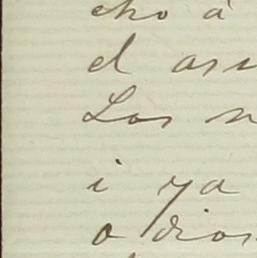 cho á
el asu
Los n
i ya
o dios